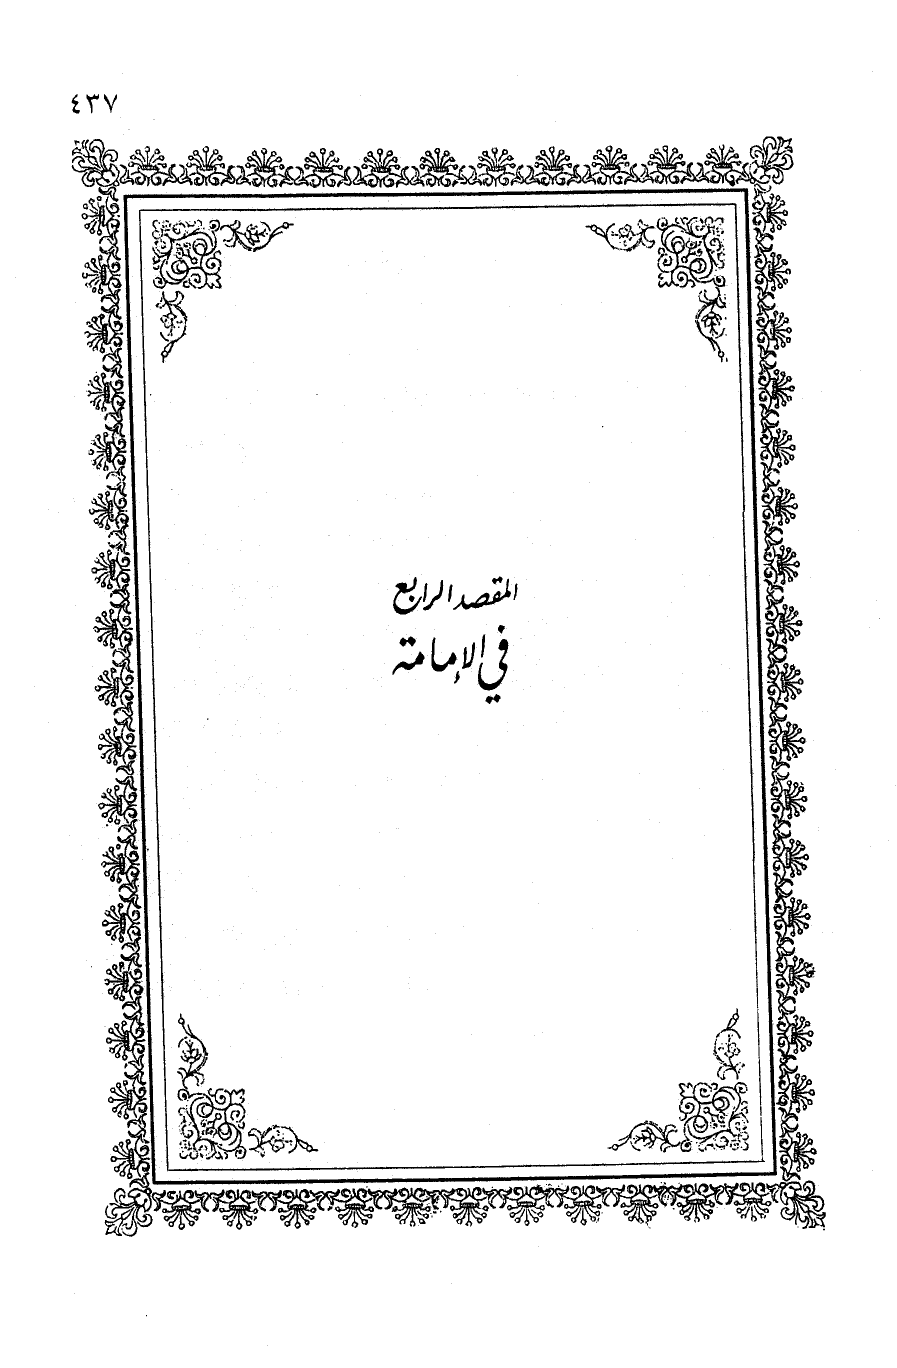 ٤٣٧
المقصد الرابع
في الإمامة